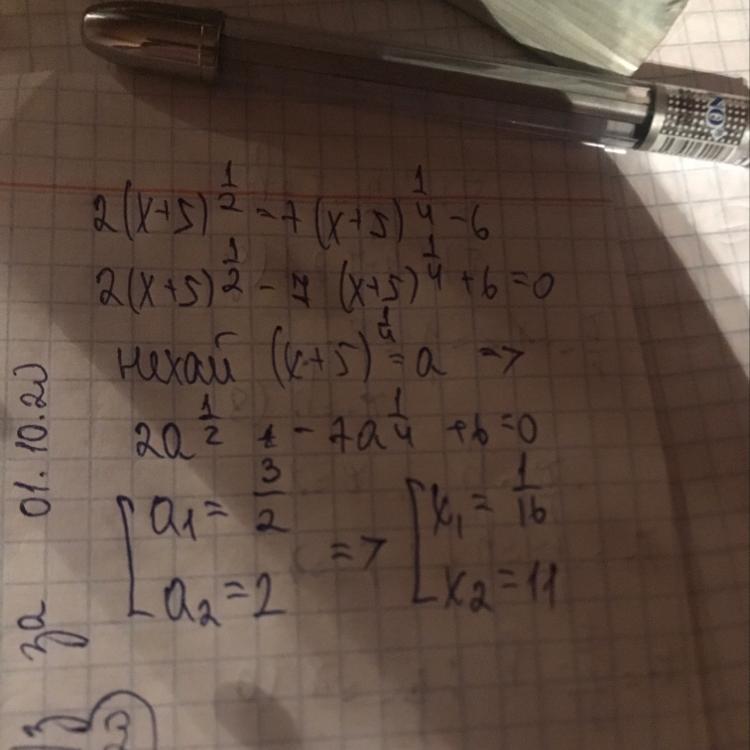 2(x+5)^(1/2) = 7(x+5)^(1/4) - 6
2(x+5)^(1/2) - 7 (x+5)^(1/4) + 6 = 0
нехай (x+5)^(1/4) = a =>
2a^(1/2) - 7a^(1/4) + 6 = 0
[ a1 = 3/2 => [ x1 = 1/16
a2 = 2 x2 = 11
за 01.10.20